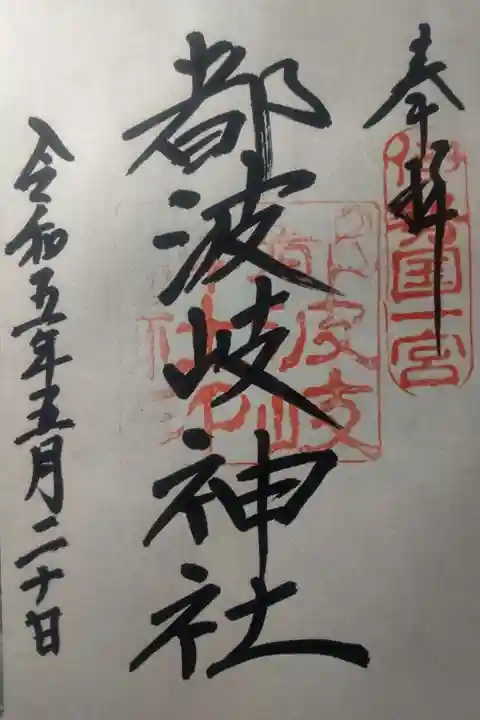 奉拝
伊勢国一宮
都波岐神社
令和五年五月二十日